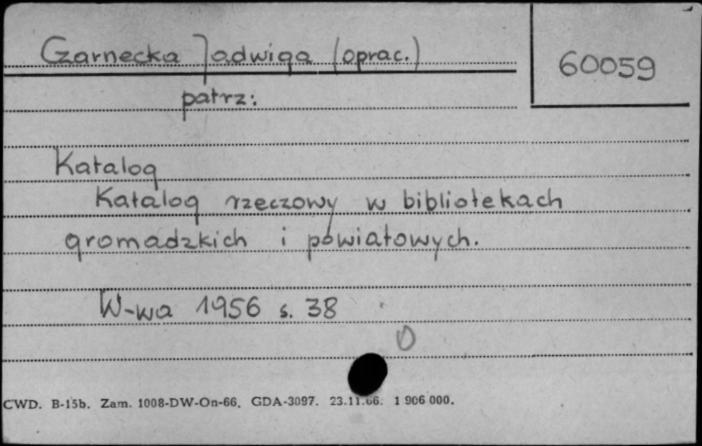 Czarnecka Jadwiga (oprac.)
60059
patrz:
Katalog
Katalog rzeczowy w bibliotekach
gromadzkich i powiatowych.
W-wa 1956 s. 38
CWD. B-15b. Zam. 1008-DW-On-66. GDA-3097. 23.11.66. 1 906 000.